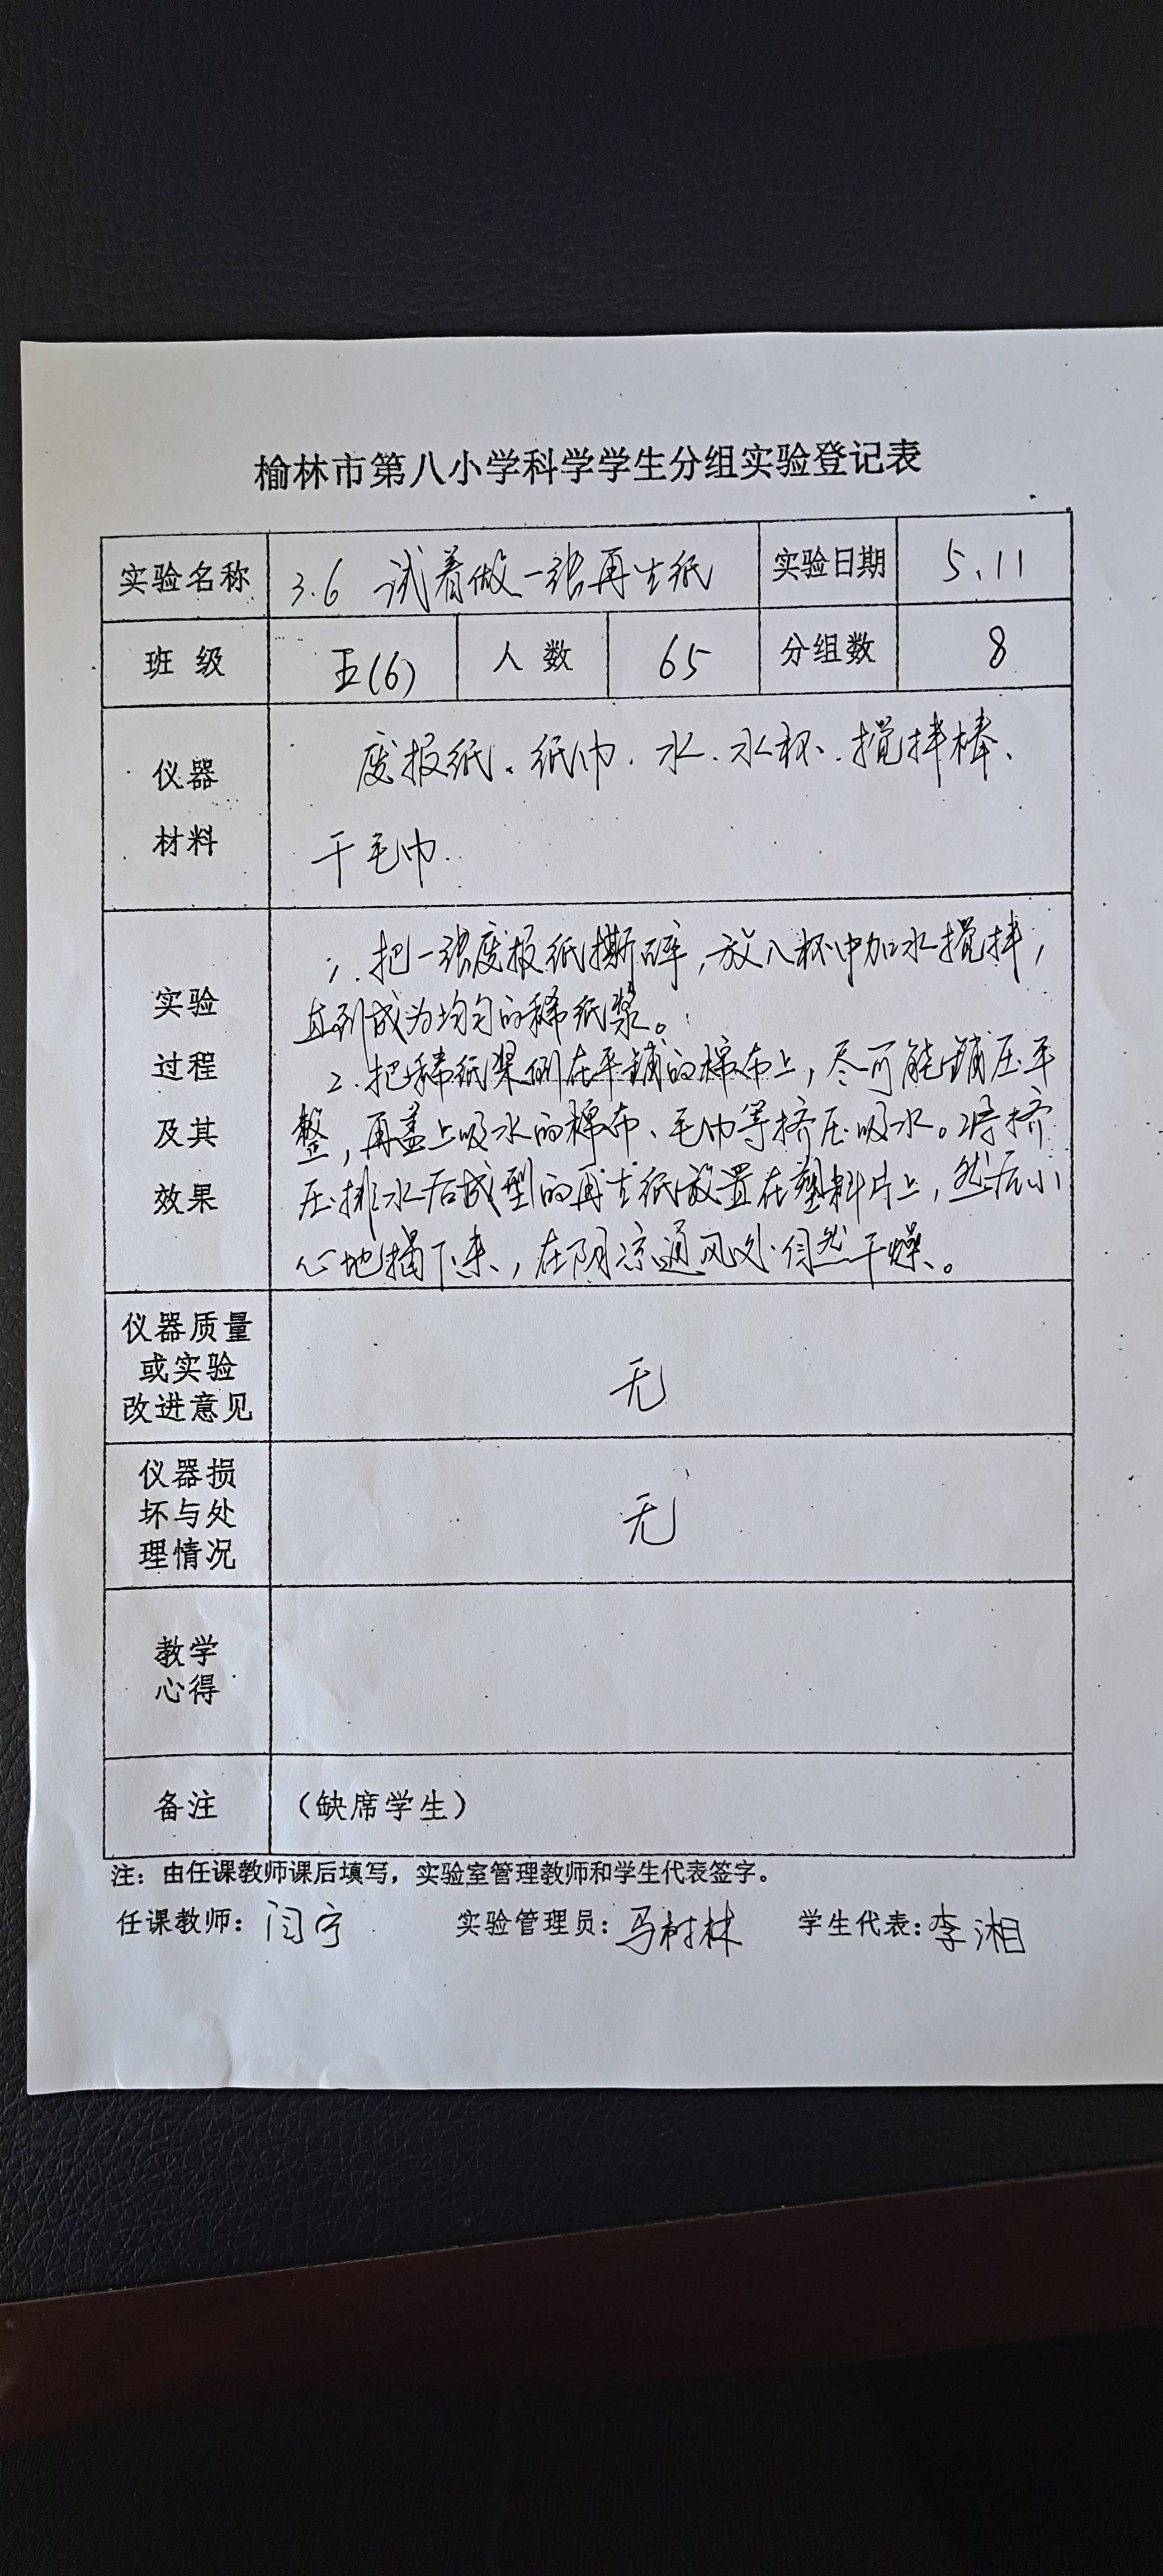 榆林市第八小学科学学生分组实验登记表
实验名称 3.6 试着做一张再生纸 实验日期 5.11
班级 五(6) 人数 65 分组数 8
仪器材料
废报纸、纸巾、水、水杯、搅拌棒、
干毛巾.
实验过程及其效果
1. 把一张废报纸撕碎,放入杯中加水搅拌,
直到成为均匀的稀纸浆。
2. 把稀纸浆倒在平铺的棉布上,尽可能铺压平
整,再盖上吸水的棉布、毛巾等挤压吸水。将挤
压排水后成型的再生纸放置在塑料片上,然后小
心地揭下来,在阴凉通风处自然干燥。
仪器质量或实验改进意见 无
仪器损坏与处理情况 无
教学心得
备注 (缺席学生)
注:由任课教师课后填写,实验室管理教师和学生代表签字。
任课教师:闫宁 实验管理员:马树林 学生代表:李湘